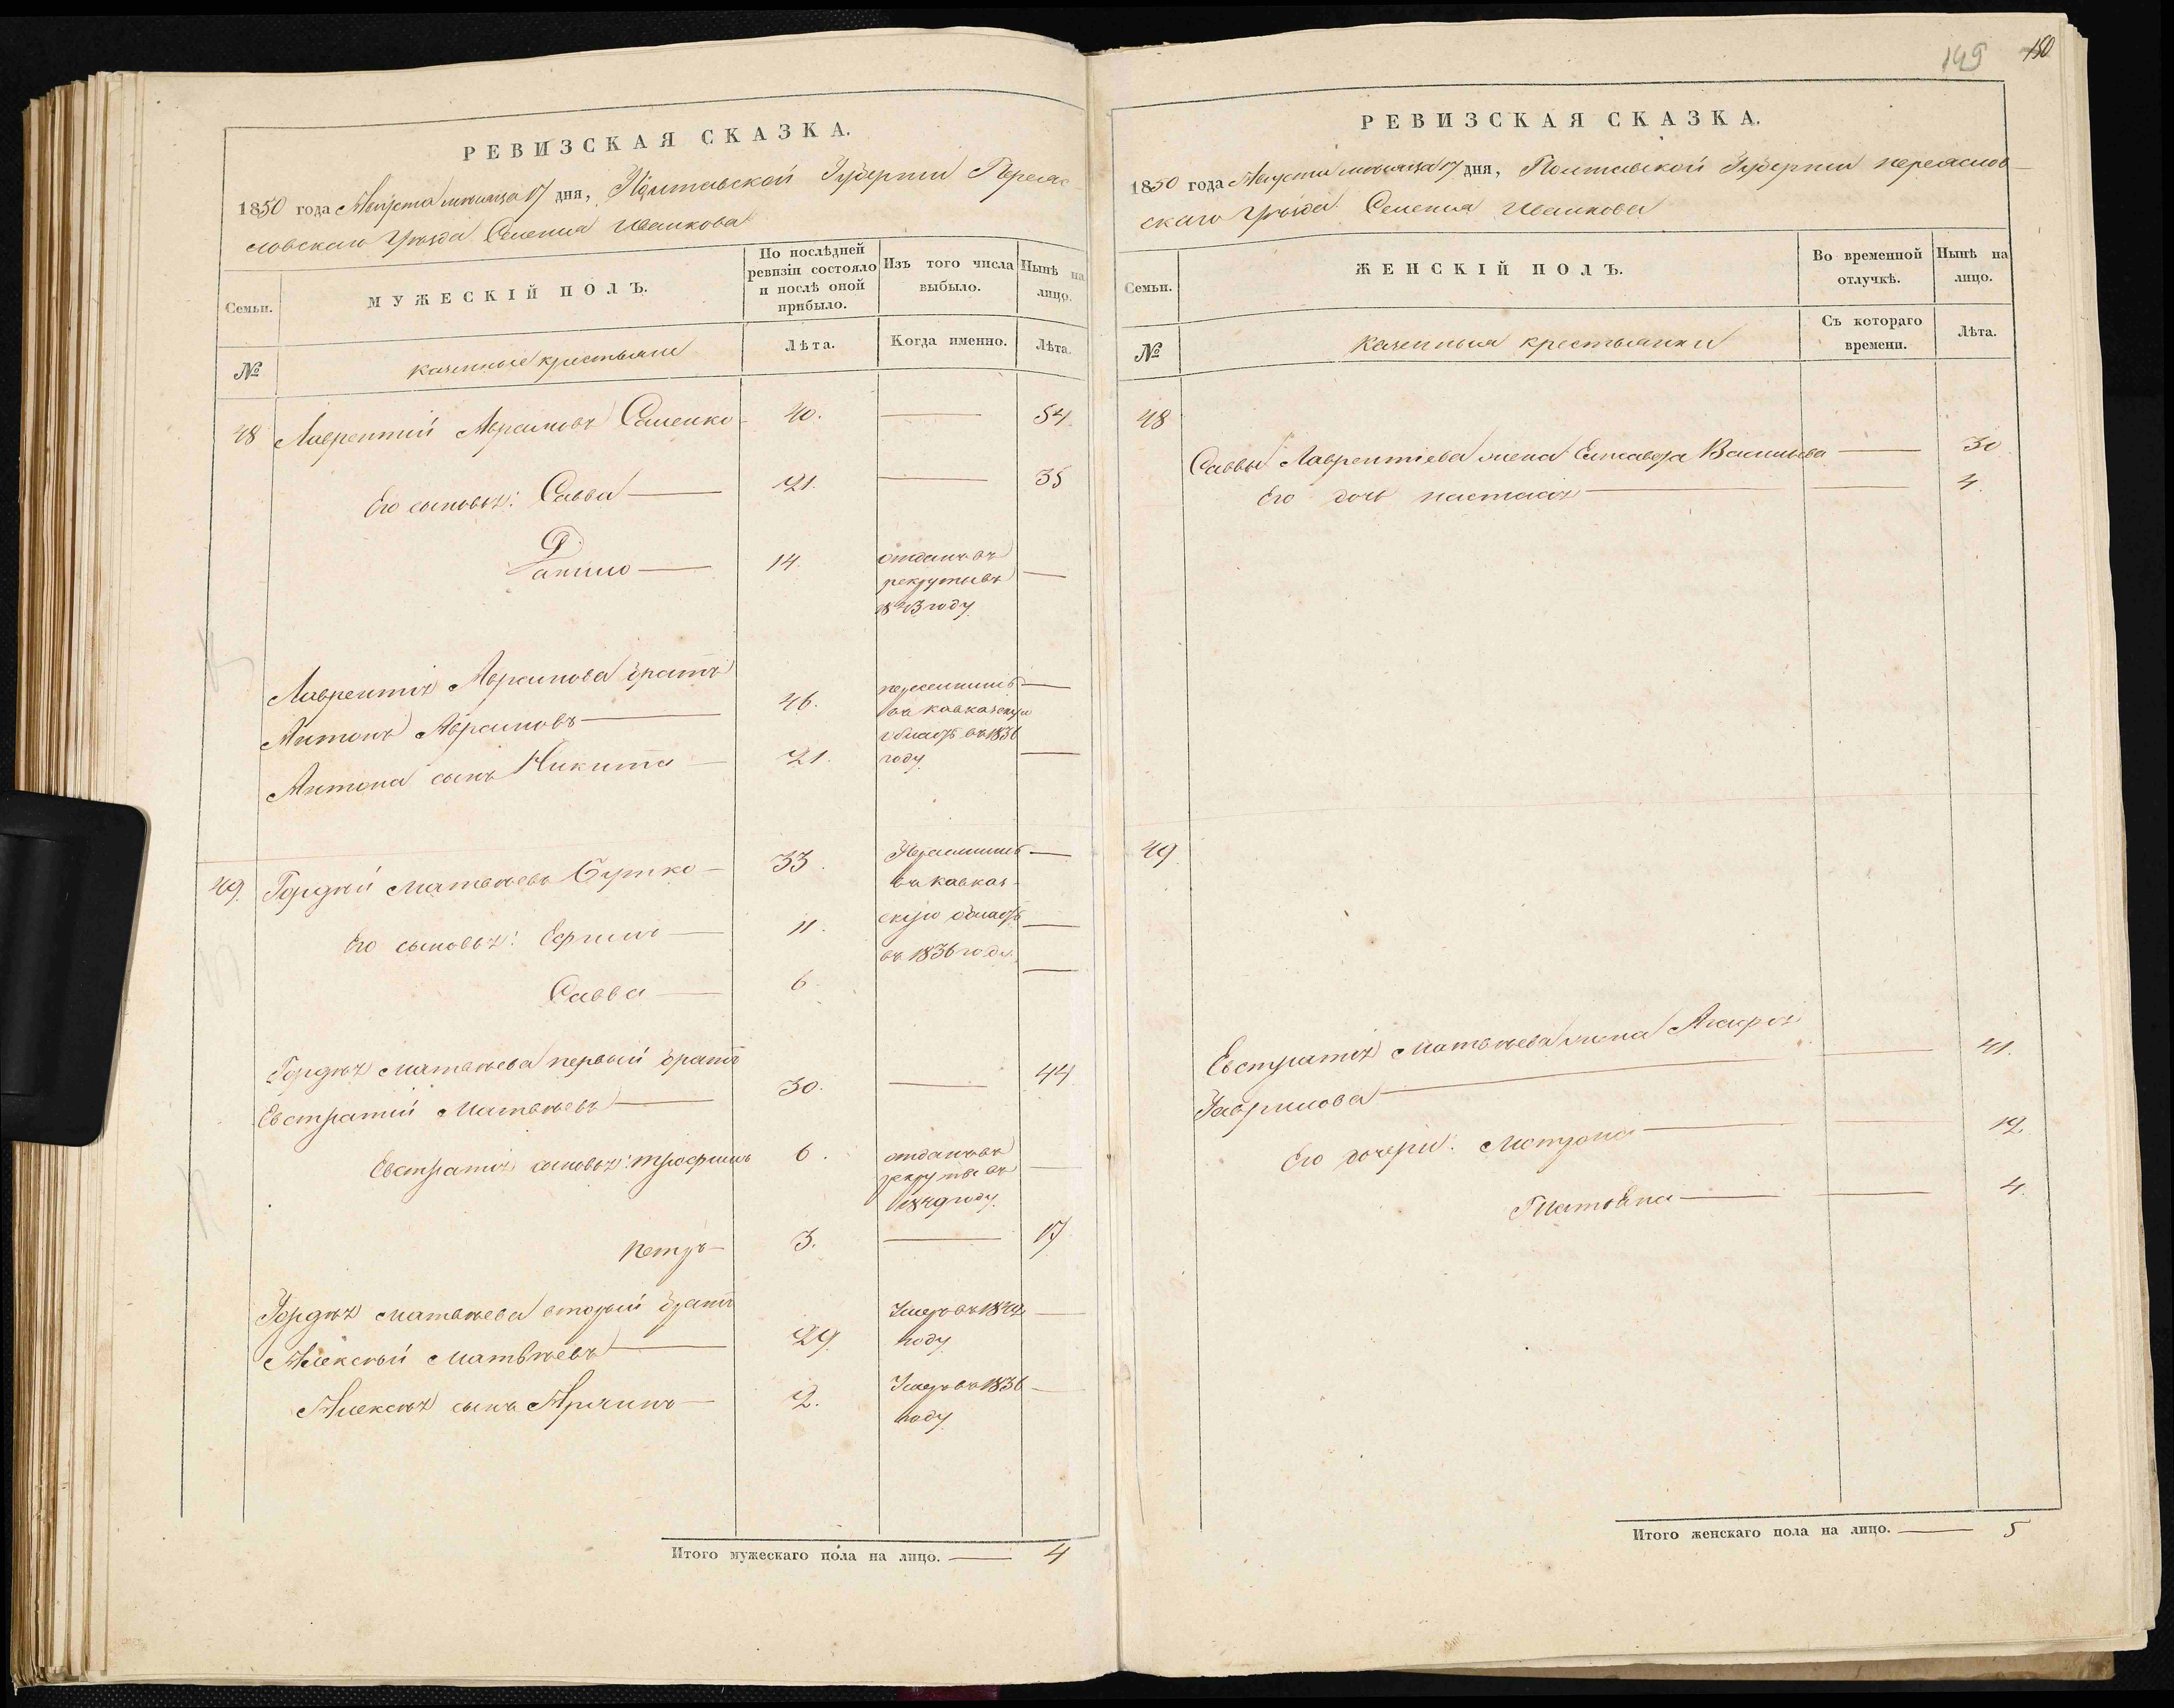 РЕВИЗСКАЯ СКАЗКА.
1850 года Августа месяца 17 дня, Полтавской Губерніи Переяс-
ловскаго Уѣзда Селенія Иванкова
Семьи.
МУЖЕСКІЙ ПОЛЪ.
По послѣдней ревизіи состояло и послѣ оной прибыло.
Изъ того числа выбыло.
Нынѣ на лицо.
№
казенные крестьяне
Лѣта.
Когда именно.
Лѣта.
48 Лаврентий Абрамовъ 40. — 54.
Его сыновья: Савва — 21. — 35
Данило — 14. отданъ въ —
рекруты въ
1843 году
Лаврентія Абрамова братъ
Антонъ Абрамовъ — 46. переселились —
въ кавказскую
область въ 1836
Антона сынъ Никита — 21. году —
49. Гордѣй Матвѣевъ — 33. Переселились —
въ кавказ-
скую область
Его сыновья: Ефримъ — 11. —
въ 1836 году.
Савва — 6. —
Гордѣя Матвѣева первый братъ
Евстратий Матвѣевъ — 30. — 44
Евстратія сыновья: Трофимъ 6. отданъ въ —
рекруты въ
1849 году.
Петръ — 3. — 17
Гордѣя Матвѣева вторый братъ
Алексѣй Матвѣевъ — 29. Умеръ въ —
году
Алексѣя сынъ — 2. Умеръ въ 1836 —
году
Итого мужескаго пола на лицо. — 4
149 150
РЕВИЗСКАЯ СКАЗКА.
1850 года Августа месяца 17 дня, Полтавской Губерніи переяслов-
скаго Уѣзда Селенія Иванкова
Семьи.
ЖЕНСКІЙ ПОЛЪ.
Во временной отлучкѣ.
Нынѣ на лицо.
№
казенныя крестьянки
Съ котораго времени.
Лѣта.
48
Саввы Лаврентіева жена Васильева — 30
Его дочь настасія — — 4.
49.
Евстратія Матвѣева жена Агафія
Гаврилова — — 41.
Его дочери: Мотрона — — 12.
— — 4.
Итого женскаго пола на лицо. — 5